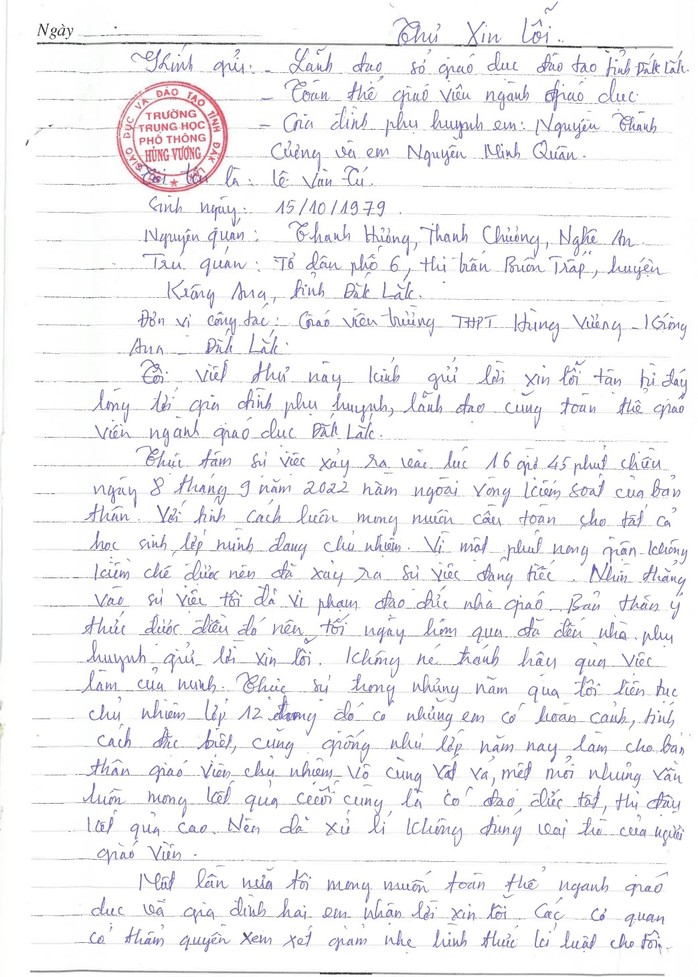 Ngày
Thư Xin lỗi.
Kính gửi: - Lãnh đạo sở giáo dục đào tạo tỉnh Đắk Lắk.
- Toàn thể giáo viên ngành giáo dục
- Gia đình phụ huynh em: Nguyễn Thành
Cường và em Nguyễn Minh Quân.
SỞ GIÁO DỤC VÀ ĐÀO TẠO TỈNH ĐẮK LẮK
TRƯỜNG
TRUNG HỌC
PHỔ THÔNG
HÙNG VƯƠNG
Tôi tên là: Lê Văn Tú.
Sinh ngày: 15/10/1979.
Nguyên quán: Thanh Hương, Thanh Chương, Nghệ An
Trú quán: Tổ dân phố 6, thị trấn Buôn Trấp, huyện
Krông Ana, tỉnh Đắk Lắk.
Đơn vị công tác: Giáo viên trường THPT Hùng Vương - Krông
Ana - Đắk Lắk.
Tôi viết thư này kính gửi lời xin lỗi tận từ đáy
lòng tới gia đình phụ huynh, lãnh đạo cùng toàn thể giáo
viên ngành giáo dục Đắk Lắk.
Thực tâm sự việc xảy ra vào lúc 16 giờ 45 phút chiều
ngày 8 tháng 9 năm 2022 nằm ngoài vòng kiểm soát của bản
thân. Với tính cách luôn mong muốn cầu toàn cho tất cả
học sinh lớp mình đang chủ nhiệm. Vì một phút nóng giận không
kiềm chế được nên đã xảy ra sự việc đáng tiếc. Nhìn thẳng
vào sự việc tôi đã vi phạm đạo đức nhà giáo. Bản thân ý
thức được điều đó nên tối ngày hôm qua đã đến nhà phụ
huynh gửi lời xin lỗi. Không né tránh hậu quả việc
làm của mình. Thực sự trong những năm qua tôi liên tục
chủ nhiệm lớp 12 trong đó có những em có hoàn cảnh, tính
cách đặc biệt, cũng giống như lớp năm nay làm cho bản
thân giáo viên chủ nhiệm vô cùng vất vả, mệt mỏi nhưng vẫn
luôn mong kết quả cuối cùng là có đạo đức tốt, thi đậu
kết quả cao. Nên đã xử lí không đúng vai trò của người
giáo viên.
Một lần nữa tôi mong muốn toàn thể ngành giáo
dục và gia đình hai em nhận lời xin lỗi. Các cơ quan
có thẩm quyền xem xét giảm nhẹ hình thức kỉ luật cho tôi.